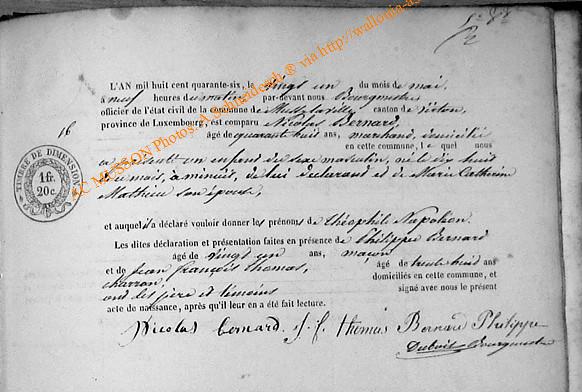 L'AN mil huit cent quarante-six, le vingt un du mois de mai,
à neuf heures du matin par-devant nous Bourgmestre
officier de l'état civil de la commune de canton de Virton,
province de Luxembourg, est comparu Nicolas Bernard,
16
âgé de quarante huit ans, marchand, domicilié
en cette commune, le quel nous
a présenté un enfant du sexe masculin, né le dix huit
de mai, à minuit, de lui déclarant et de Marie Catherine
Mathieu son épouse,
et auquel il a déclaré vouloir donner les prénoms de Théophile Napoléon.
Les dites déclaration et présentation faites en présence de Philippe Bernard
âgé de vingt un ans, maçon
et de Jean François Thomas, âgé de trente huit ans
charron, domiciliés en cette commune, et
ont les père et témoins signé avec nous le présent
acte de naissance, après qu'il leur en a été fait lecture.
Nicolas bernard J. f. thomas Bernard Philippe
Bourgmestre
TIMBRE DE DIMENSION
1 fr.
20 c.
MUSSON Photos A. Schneidesch ® via http://wallonia-as